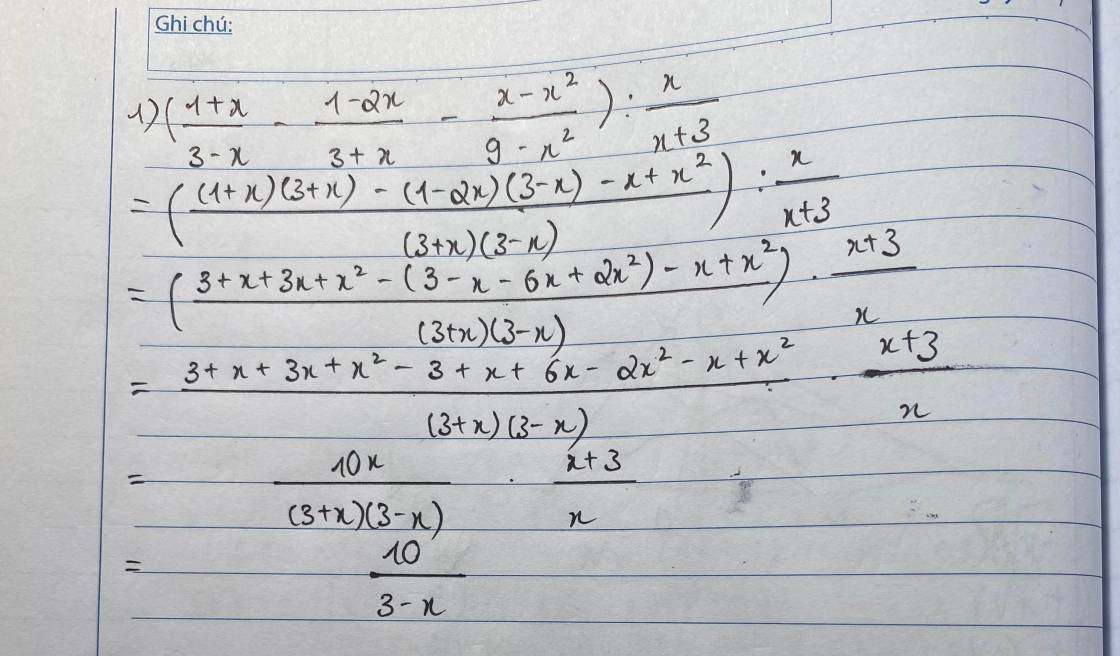 Ghi chú:
1) ((1+x)/(3-x) - (1-2x)/(3+x) - (x-x²)/(9-x²)) : x/(x+3)
= (((1+x)(3+x) - (1-2x)(3-x) - x+x²)/((3+x)(3-x))) : x/(x+3)
= ((3+x+3x+x² - (3-x-6x+2x²) - x+x²)/((3+x)(3-x))) . (x+3)/x
= (3+x+3x+x² - 3+x+6x-2x²-x+x²)/((3+x)(3-x)) . (x+3)/x
= 10x/((3+x)(3-x)) . (x+3)/x
= 10/(3-x)